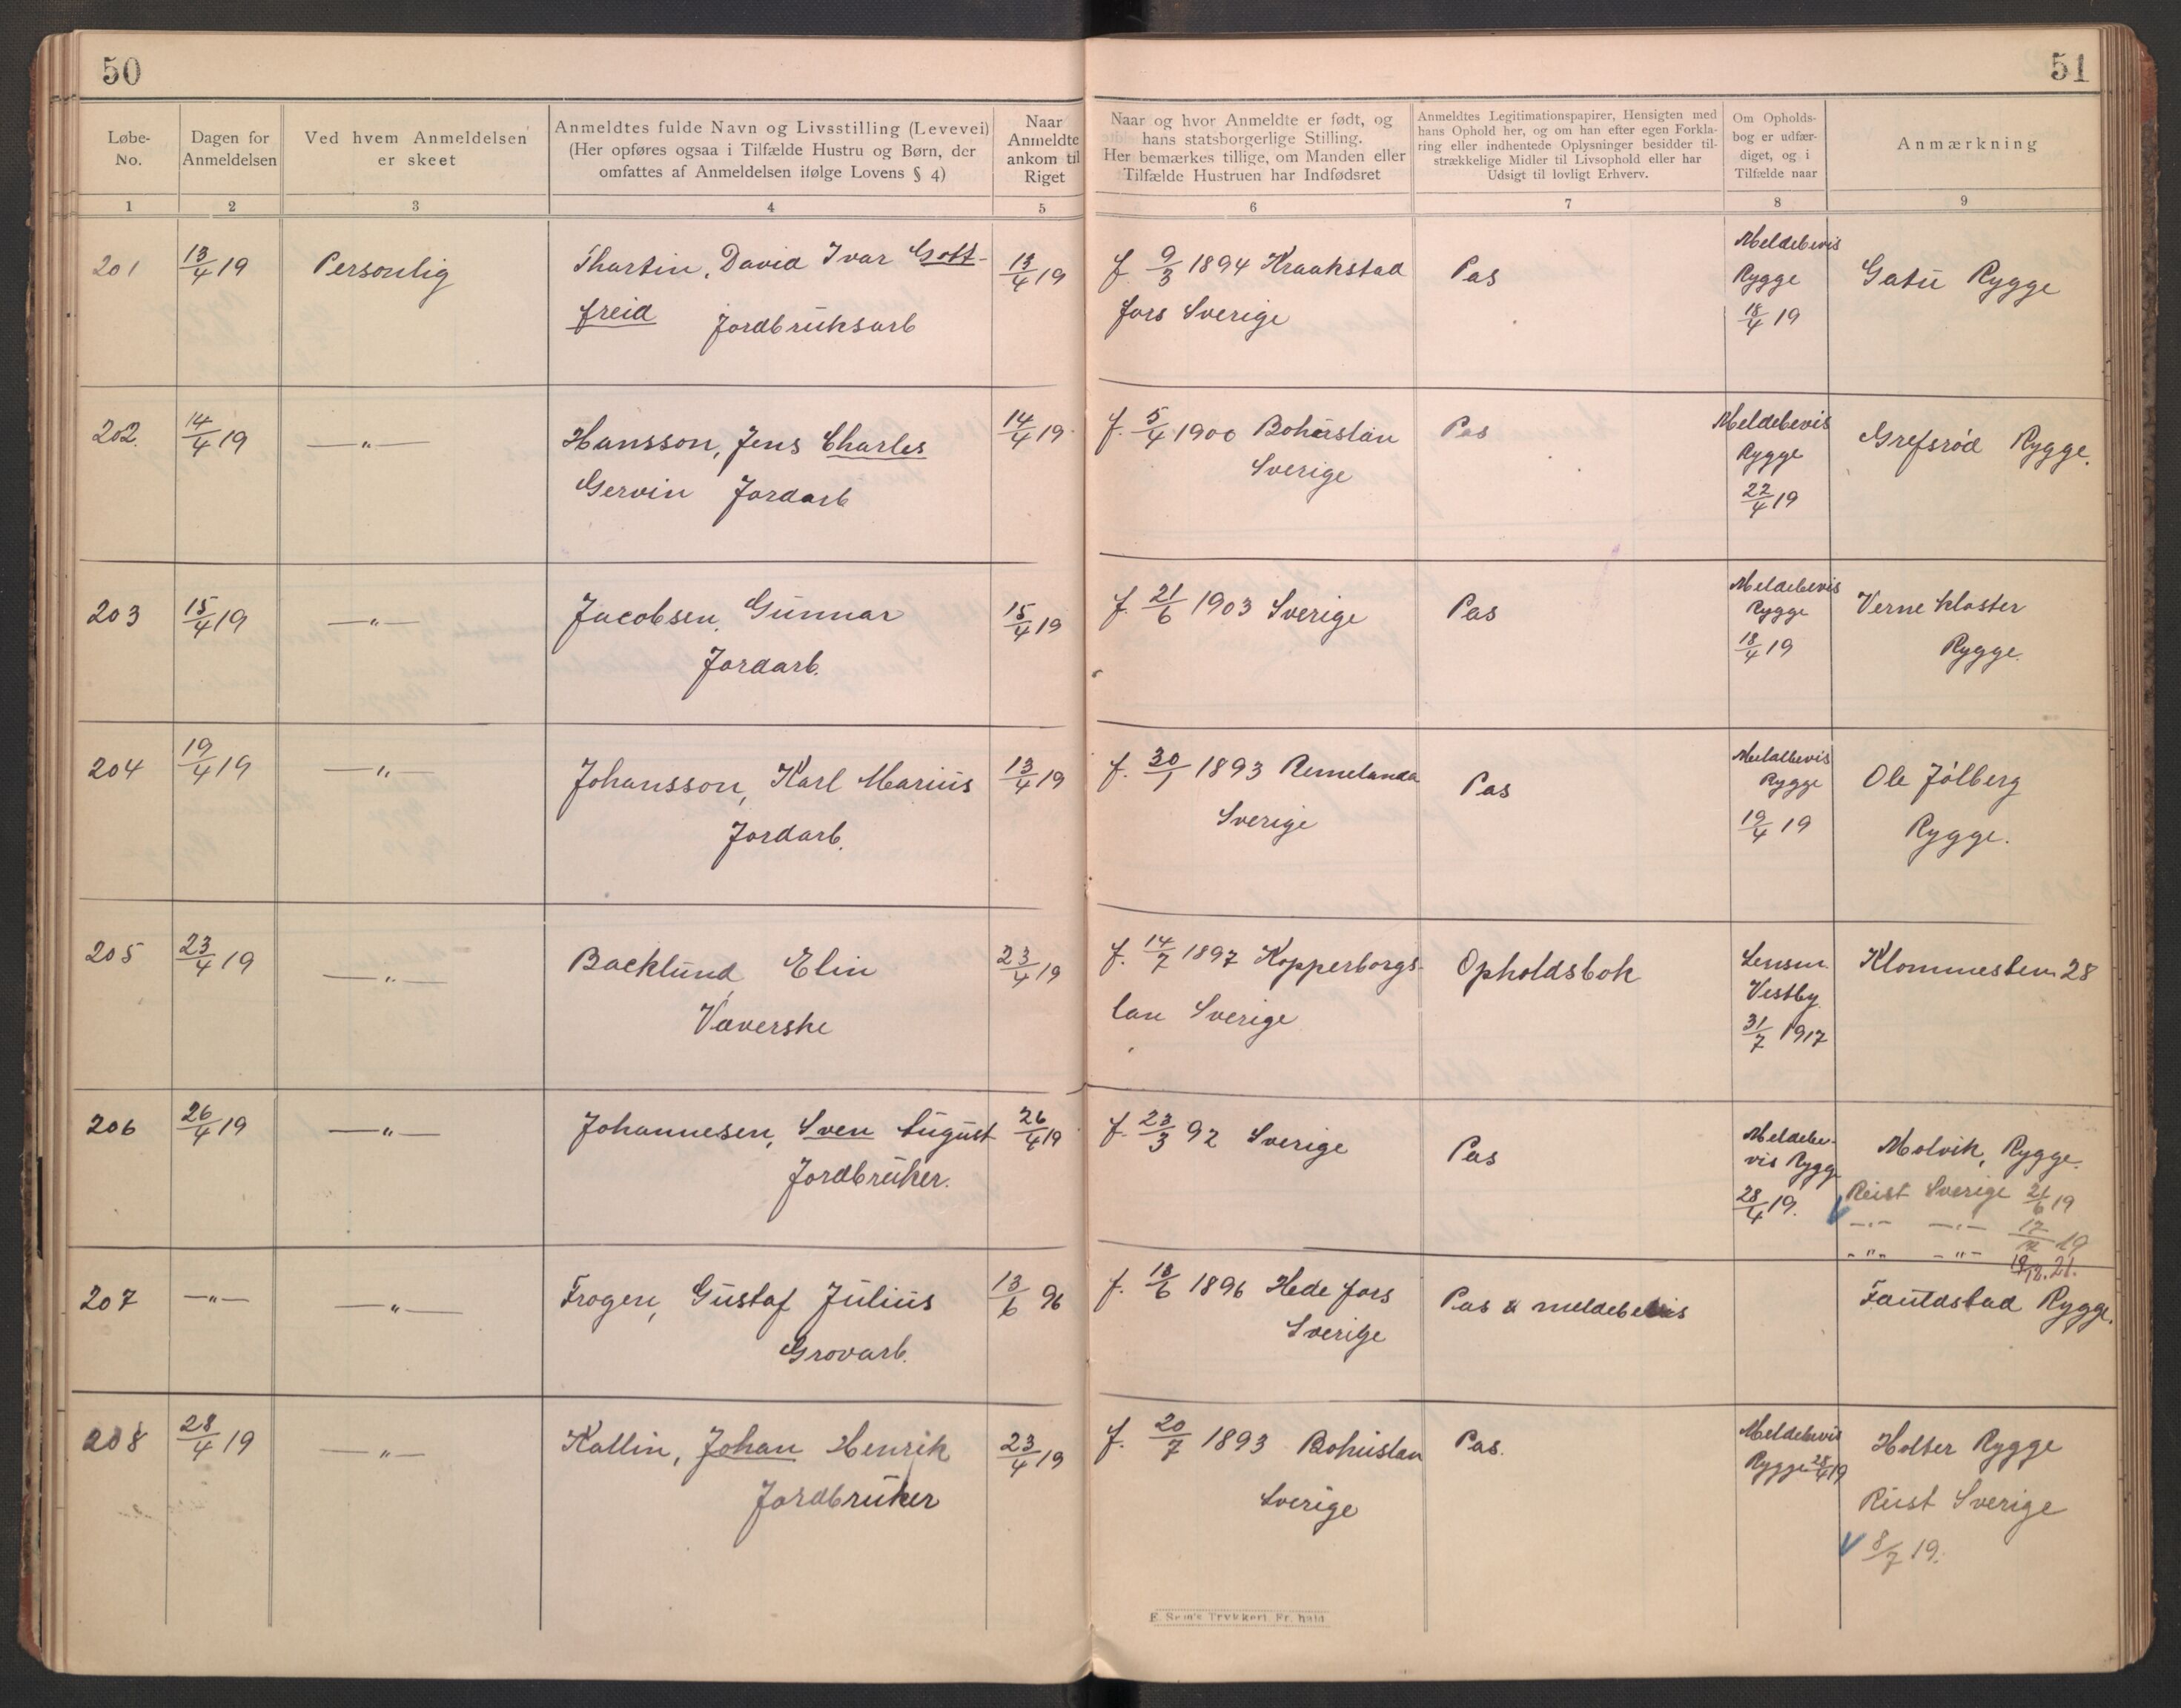 50
Løbe-No.
Dagen for Anmeldelsen
Ved hvem Anmeldelsen er skeet
Anmeldtes fulde Navn og Livsstilling (Levevei)
(Her opføres ogsaa i Tilfælde Hustru og Børn, der
omfattes af Anmeldelsen ifølge Lovens § 4)
Naar Anmeldte ankom til Riget
1 2 3 4 5
201 13/4 19 Personlig Thartin, David Ivar Gott- 13/4 19
freid Jordbruksarb
202. 14/4 19 —„— Hansson, Jens Charles 14/4 19
Gervin Jordarb
203 15/4 19 —„— Jacobsen, Gunnar 15/4 19
Jordarb.
204 19/4 19 —„— Johansson, Karl Marius 13/4 19
Jordarb.
205 23/4 19 —„— Backlund, Elin 23/4 19
Væverske
206 26/4 19 —„— Johannesen, Sven August 26/4 19
Jordbruker.
207 —„— —„— Frogen, Gustaf Julius 13/6 96
Grovarb.
208 28/4 19 —„— Kallin, Johan Henrik 23/4 19
Jordbruker
51
Naar og hvor Anmeldte er født, og
hans statsborgerlige Stilling.
Her bemærkes tillige, om Manden eller
Tilfælde Hustruen har Indfødsret
Anmeldtes Legitimationspapirer, Hensigten med
hans Ophold her, og om han efter egen Forkla-
ring eller indhentede Oplysninger besidder til-
strækkelige Midler til Livsophold eller har
Udsigt til lovligt Erhverv.
Om Opholds-
bog er udfær-
diget, og i
Tilfælde naar
Anmærkning
6 7 8 9
f. 9/3 1894 Kraakstad Pas Meldebevis Gatu Rygge
fors Sverige Rygge
18/4 19
f. 5/4 1900 Bohuslän Pas Meldebevis Grefsrød Rygge.
Sverige Rygge
22/4 19
f. 21/6 1903 Sverige Pas Meldebevis Verne Kloster
Rygge Rygge.
18/4 19
f. 30/1 1893 Remelanda Pas Meldebevis Ole Jölberg
Sverige Rygge Rygge.
19/4 19
f. 14/7 1897 Kopperborgs- Opholdsbok Lensm. Klommesten 28
lan Sverige Vestby
31/7 1917
f. 23/3 92 Sverige Pas Meldebe- Molvik, Rygge.
vis Rygg Reist Sverige 21/6 19
28/4 19. —„— —„— 17/12 19
—„— —„— 19/12. 21.
f. 13/6 1896 Hedefors Pas & meldebevis Fauldstad Rygge.
Sverige
f. 20/7 1893 Bohuslan Pas. Meldebevis Holter Rygge
Sverige Rygge 28/4 19 Reist Sverige
8/7 19.
E. Sem's Trykkeri, Fr.hald